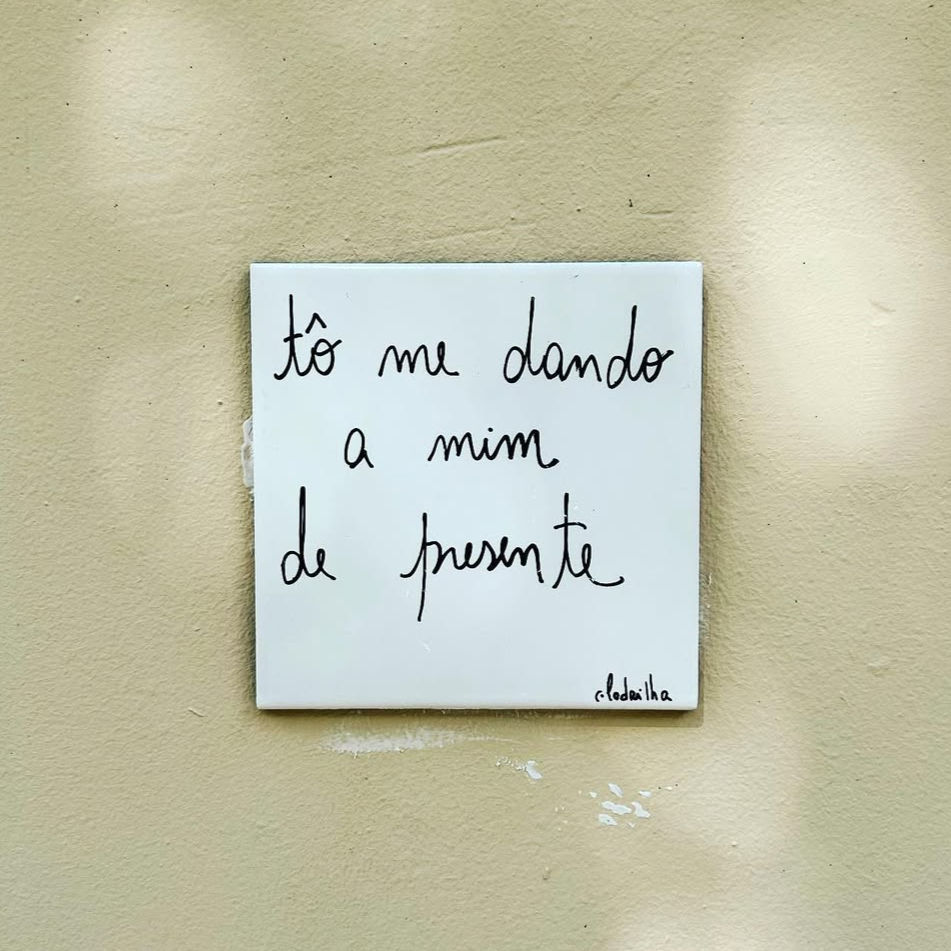 tô me dando
a mim
de presente
c.ladrilha